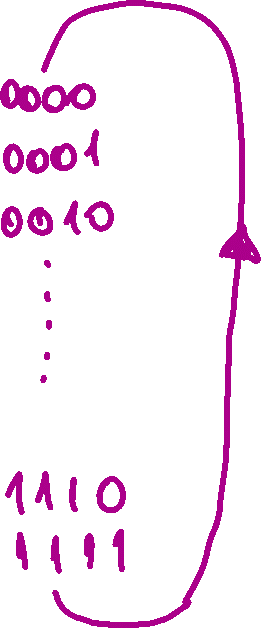 0000
0001
0010
1110
1111